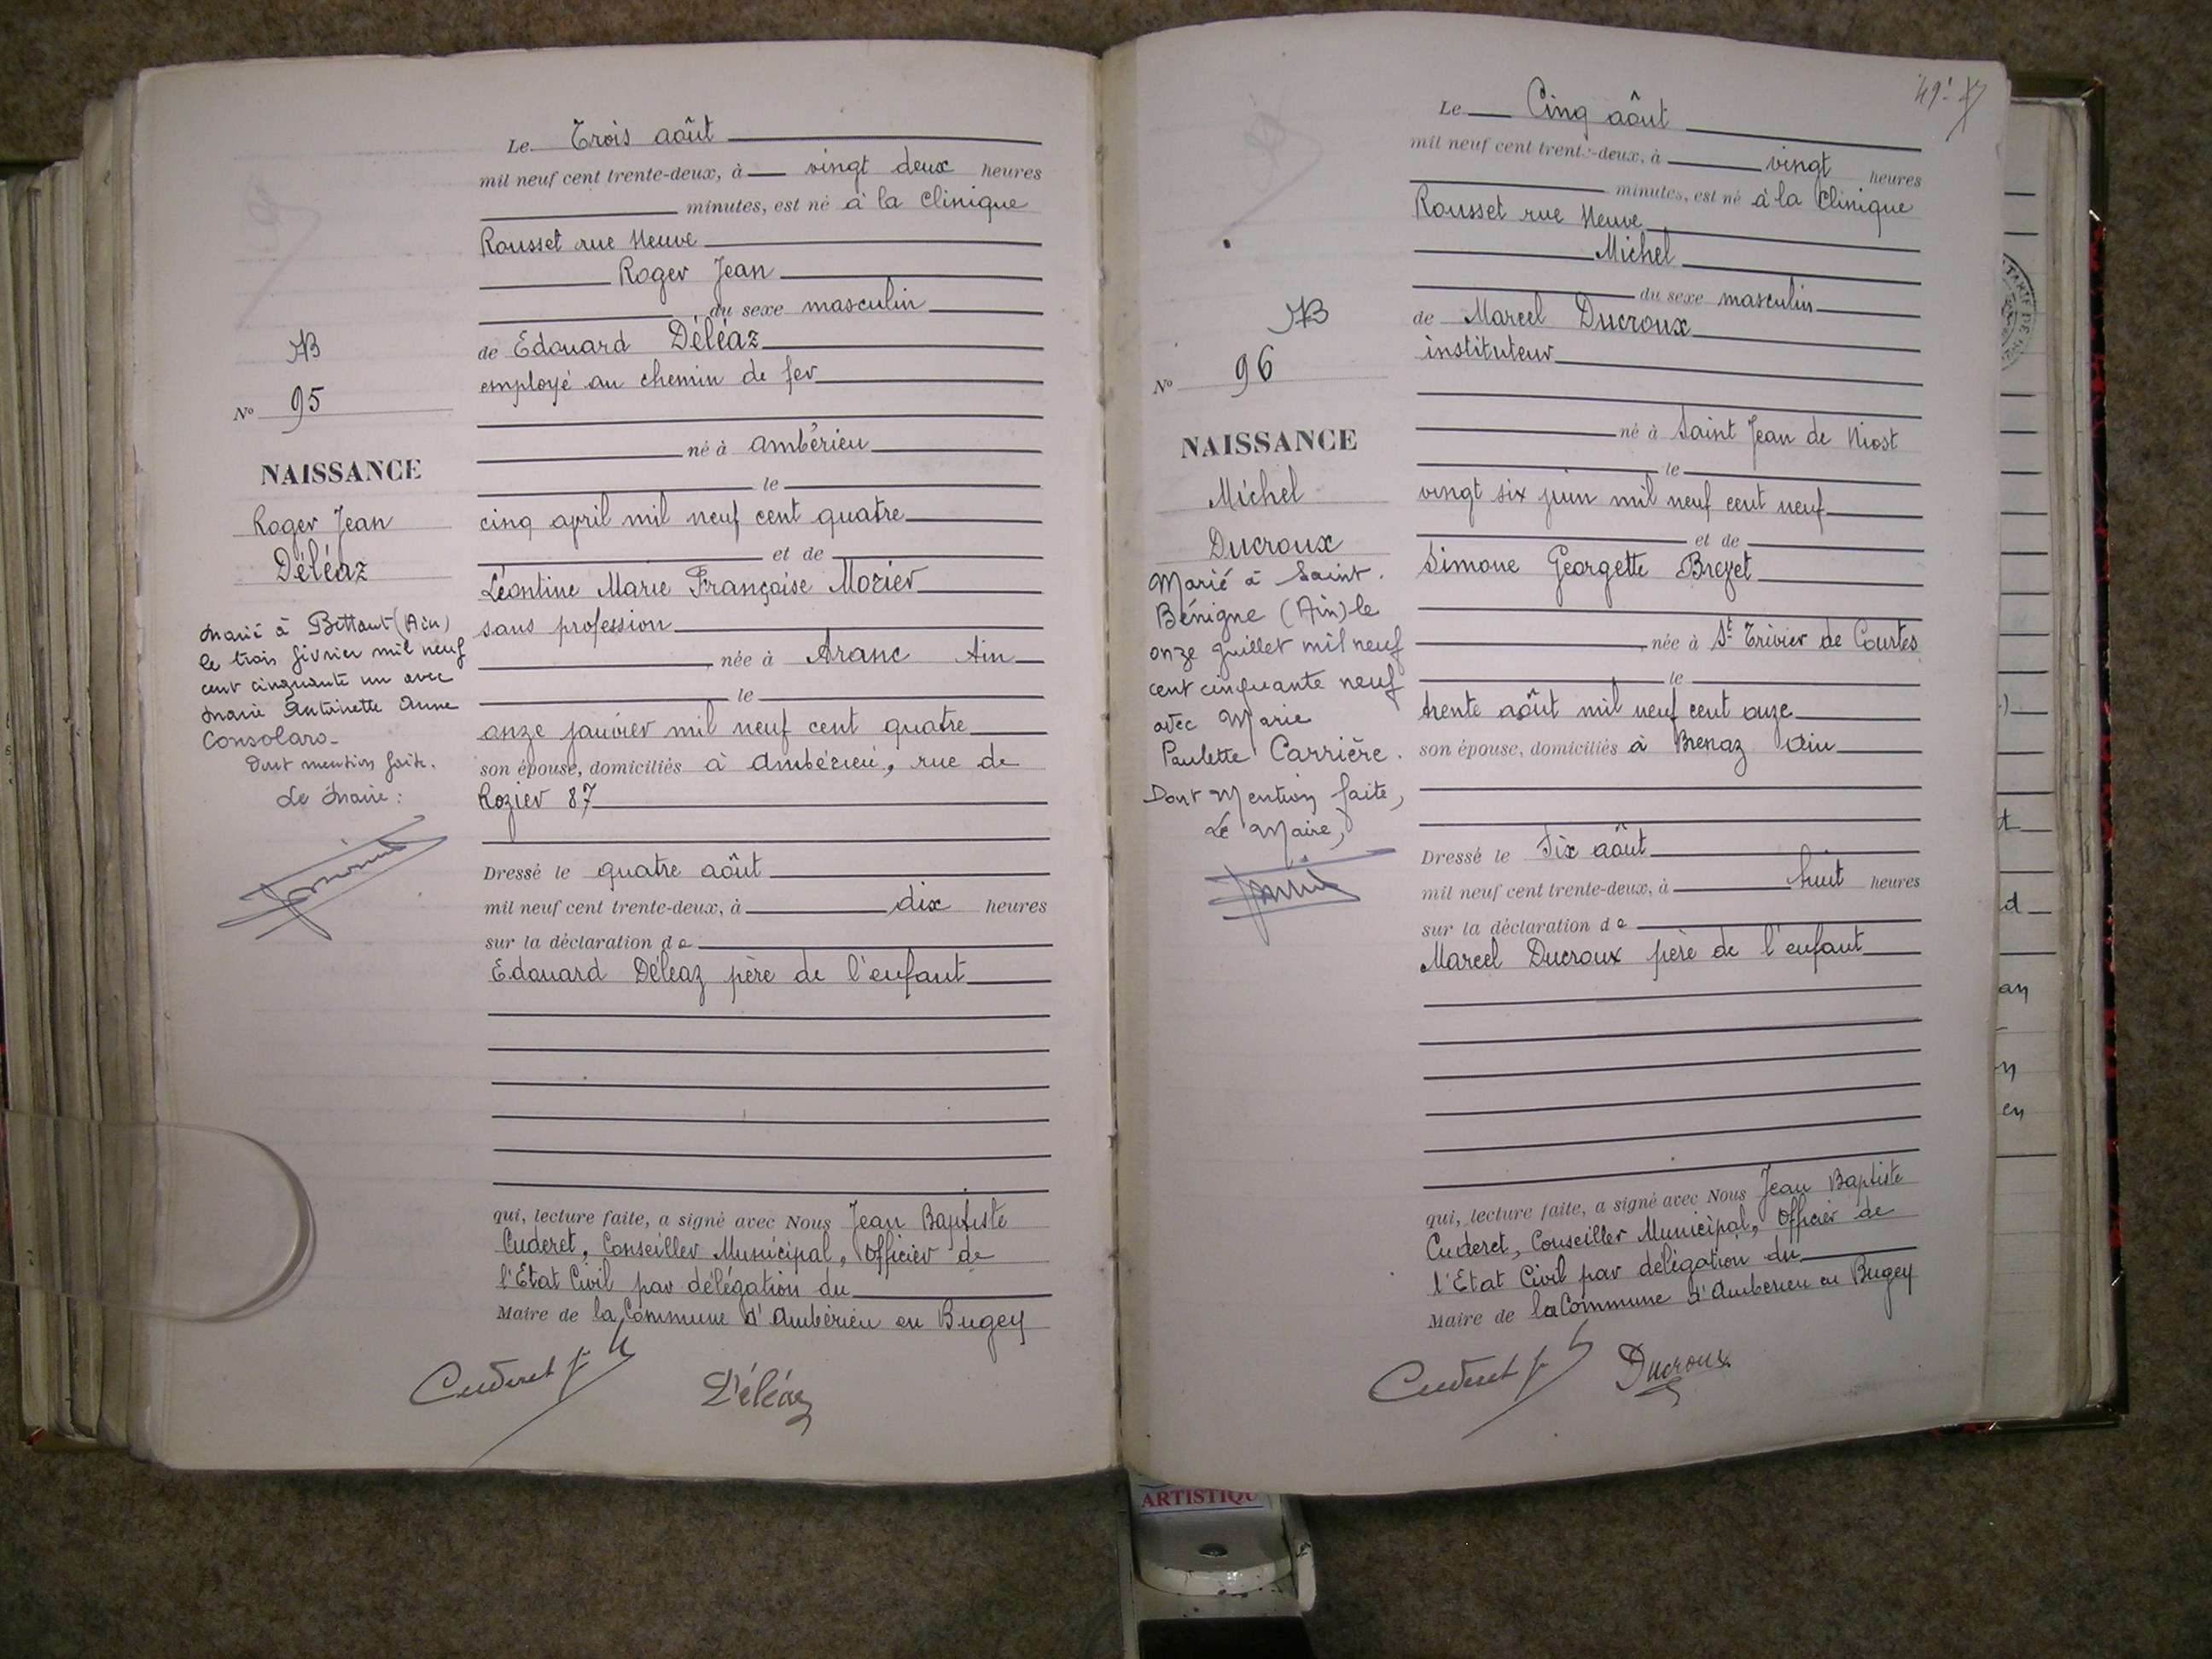 Le Trois août
mil neuf cent trente-deux, à vingt deux heures
minutes, est né à la Clinique
Rousset rue Neuve
Roger Jean
du sexe masculin
de Edouard Déléaz
employé au chemin de fer
né à Ambérieu
le
cinq april mil neuf cent quatre
et de
Léontine Marie Françoise Mozier
sans profession
née à Aranc Ain
le
onze janvier mil neuf cent quatre
son épouse, domiciliés à Ambérieu, rue de
Rozier 87
Dressé le quatre août
mil neuf cent trente-deux, à dix heures
sur la déclaration de
Edouard Déléaz père de l'enfant
qui, lecture faite, a signé avec Nous Jean Baptiste
Cuderet, Conseiller Municipal, Officier de
l'Etat Civil par délégation du
Maire de la Commune d'Ambérieu en Bugey
Cuderet Déléaz
No 95
NAISSANCE
Roger Jean
Déléaz
Marié à Bettant (Ain)
le trois février mil neuf
cent cinquante un avec
Marie Antoinette Anne
Consolaro
Dont mention faite.
Le Maire :
Le Cinq août
mil neuf cent trente-deux, à vingt heures
minutes, est né à la Clinique
Rousset rue Neuve
Michel
du sexe masculin
de Marcel Ducroux
instituteur
né à Saint Jean de Niost
le
vingt six juin mil neuf cent neuf
et de
Simone Georgette Breyet
née à St Trivier de Courtes
le
trente août mil neuf cent onze
son épouse, domiciliés à Brenaz Ain
Dressé le Six août
mil neuf cent trente-deux, à huit heures
sur la déclaration de
Marcel Ducroux père de l'enfant
qui, lecture faite, a signé avec Nous Jean Baptiste
Cuderet, Conseiller Municipal, Officier de
l'Etat Civil par délégation du
Maire de la Commune d'Ambérieu en Bugey
Cuderet Ducroux
No 96
NAISSANCE
Michel
Ducroux
Marié à Saint
Bénigne (Ain) le
onze juillet mil neuf
cent cinquante neuf
avec Marie
Paulette Carrière.
Dont Mention faite,
Le Maire,
ARTISTIQU